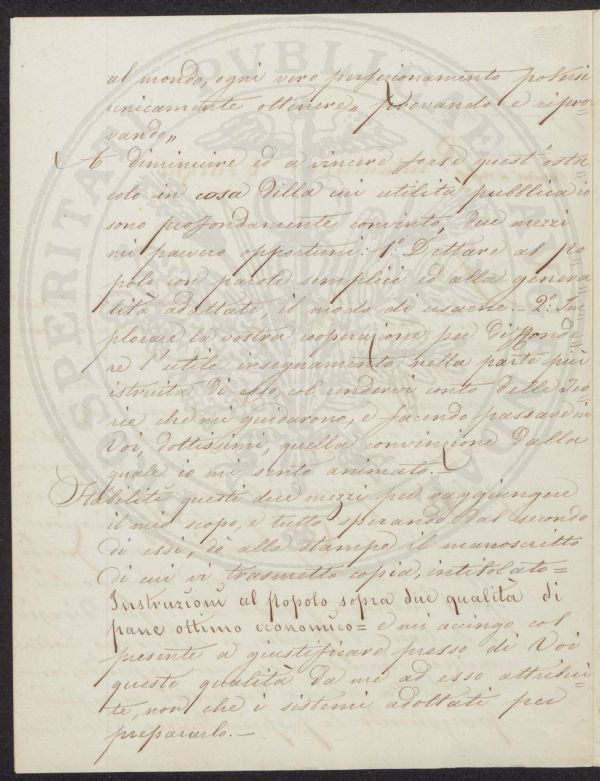 al mondo, ogni vero perfezionamento potersi
unicamente ottenere „ provando e ripro=
vando„
A diminuire ed a vincere forse quest' osta=
colo in cosa della cui utilità pubblica io
sono profondamente convinto, due mezzi
mi parvero opportuni: 1.° Dettare al po=
polo con parole semplici, ed alla genera=
lità adattate, il modo di usarne. - 2.° Im=
plorare la vostra cooperazione per diffonde=
re l'utile insegnamento nella parte più
istruita di esso, col rendervi conto delle Teo=
rie che mi guidarono, e facendo passare in
Voi, dottissimi, quella convinzione dalla
quale io mi sento animato. -
Stabiliti questi due mezzi per raggiungere
il mio scopo, e tutto sperando dal secondo
di essi, dò alle stampe il manoscritto
di cui vi trasmetto copia, intitolato=
Instruzioni al popolo sopra due qualità di
pane ottimo economico= e mi accingo col
presente a giustificare presso di Voi
queste qualità da me ad esso attribui=
te, non che i sistemi adottati per
prepararlo. -
PVBLICAE
PROSPERITA